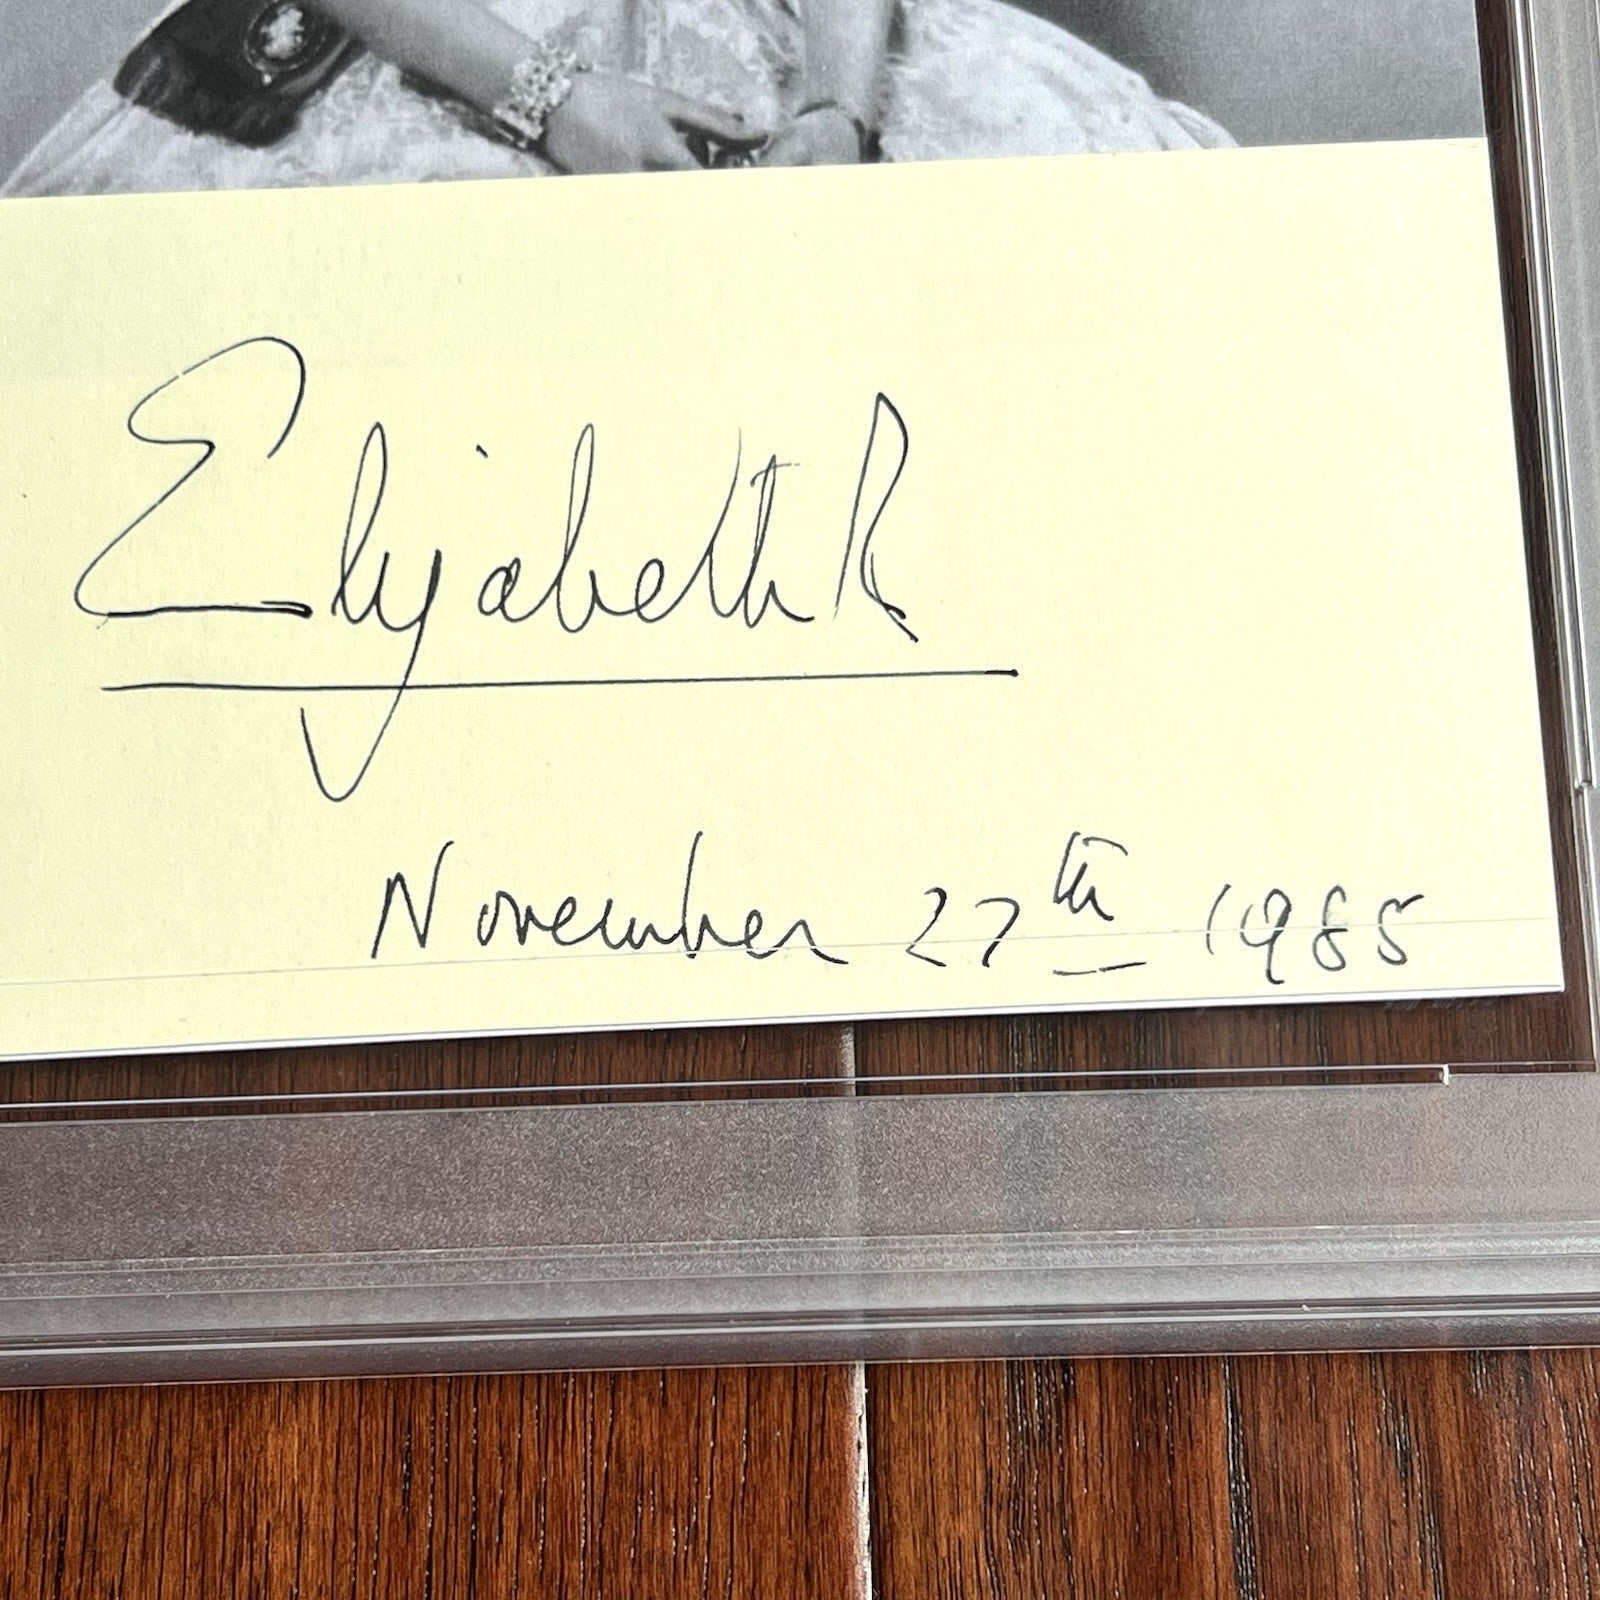 Elizabeth R
November 27th 1985